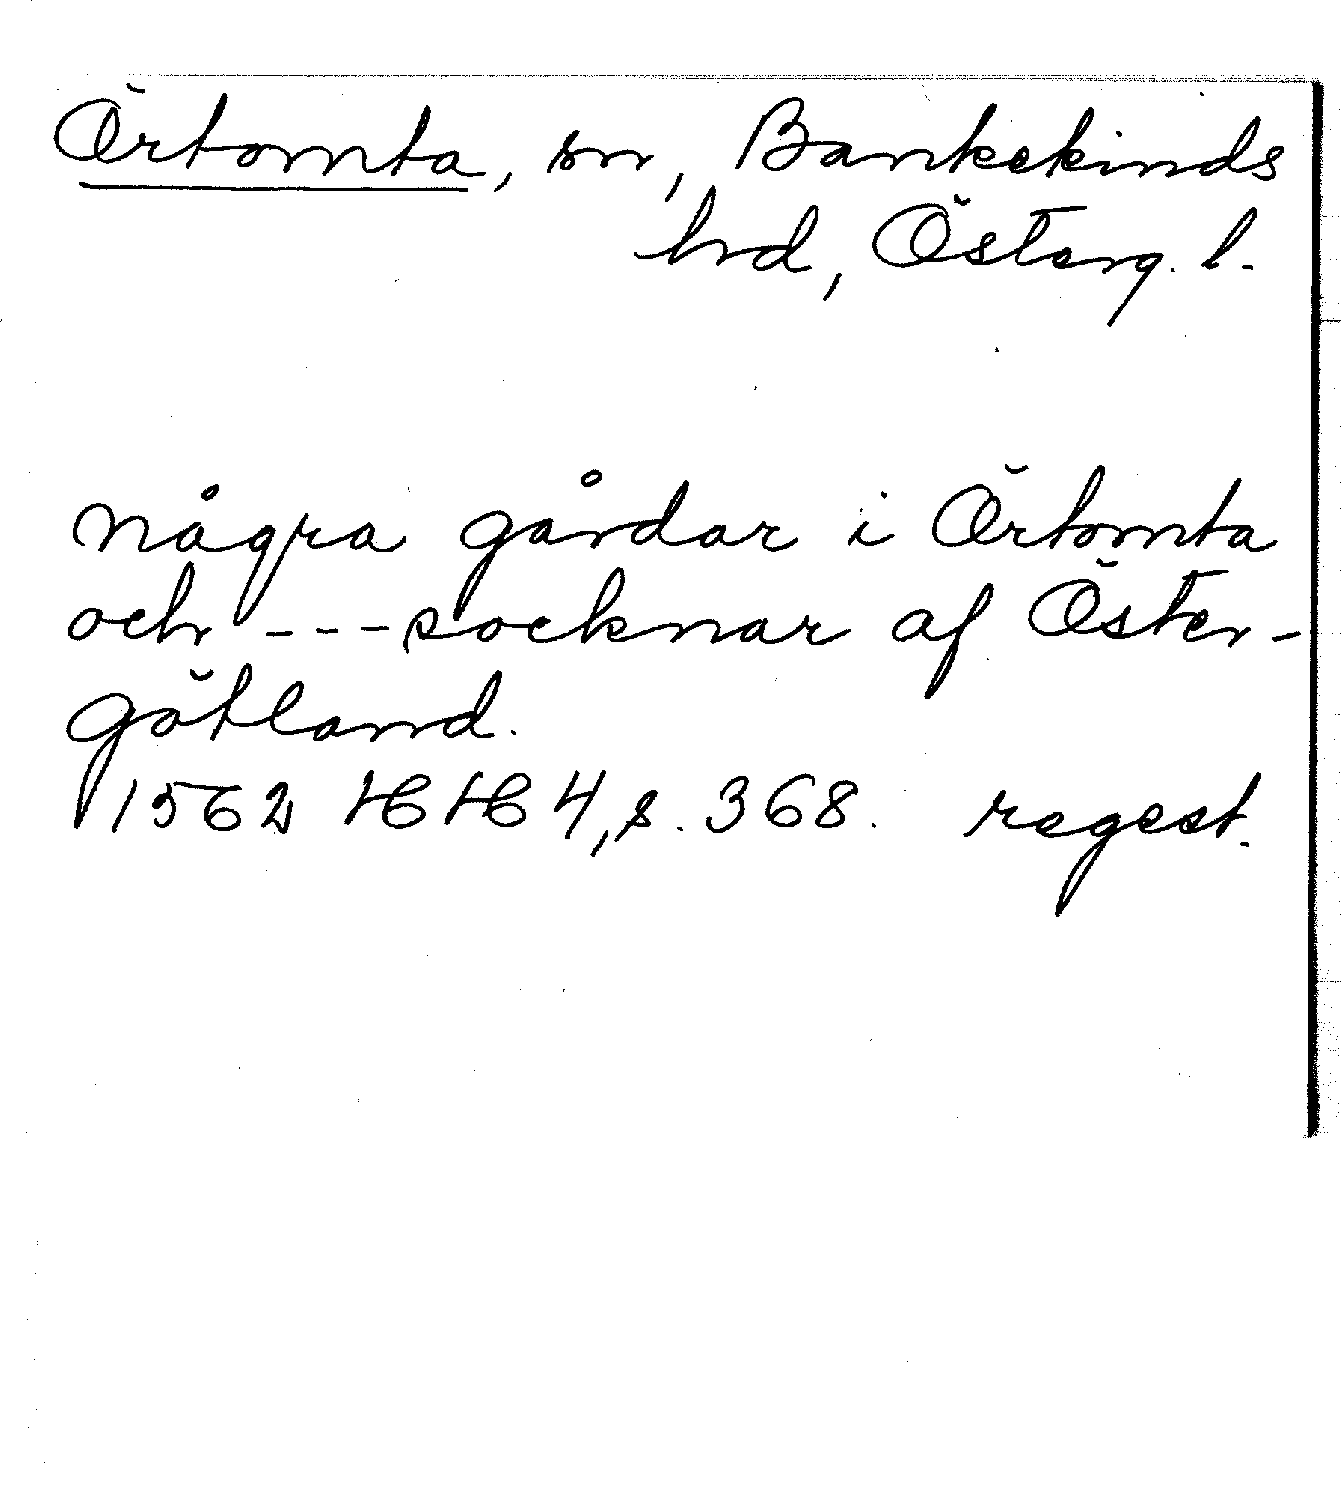 Örtomta, sn, Bankekinds
hrd, Österg. l.
några gårdar i Örtomta
och --- socknar af Öster-
götland.
1562 HH 4, s. 368. regest.